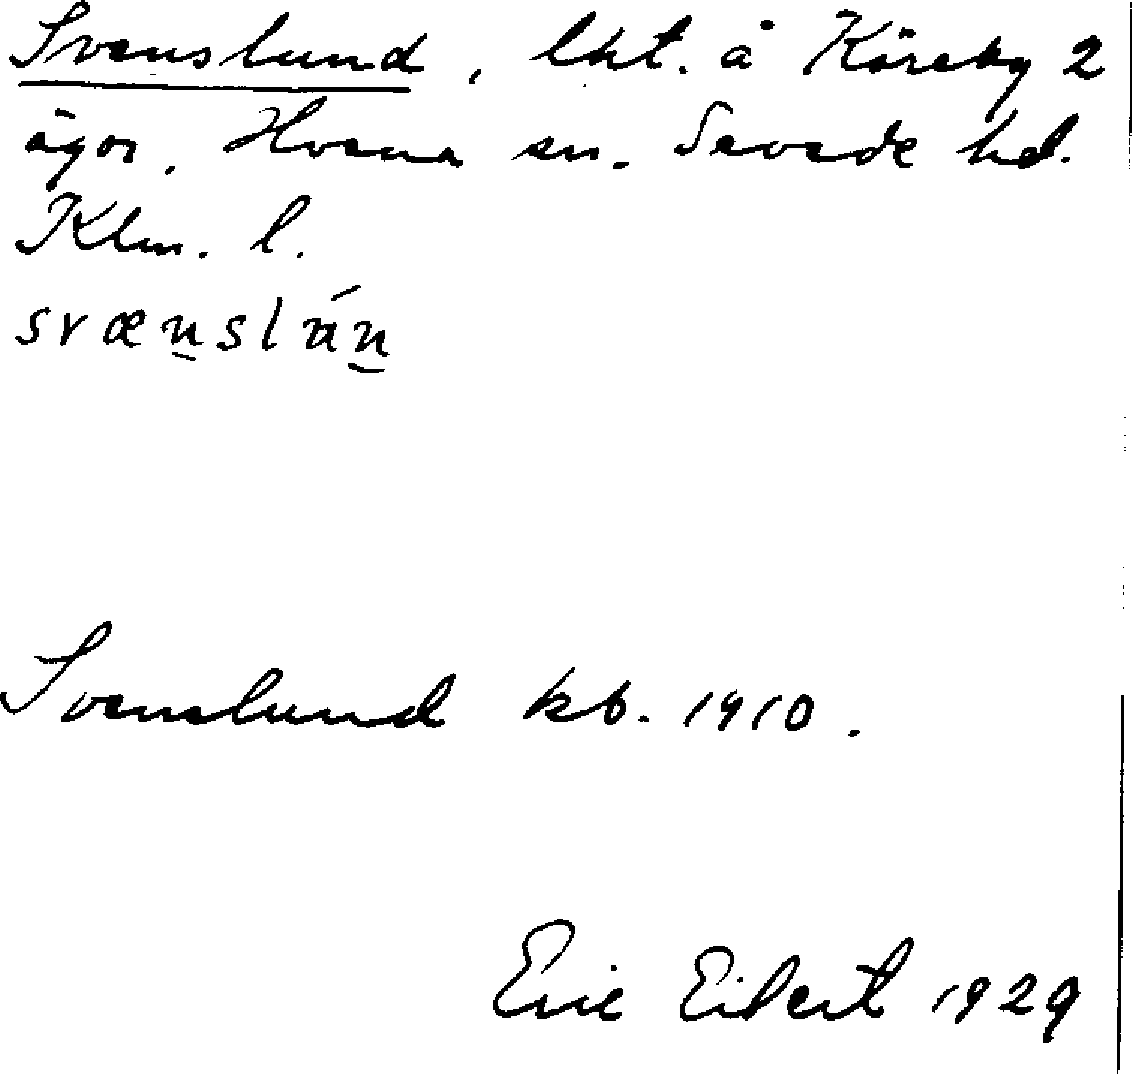 Svenslund, lht. å Köreby 2
ägor, Hvena sn. Sevede hd.
Klm. l.
svænslán
Svenslund kb. 1910.
Eric Eilert 1929